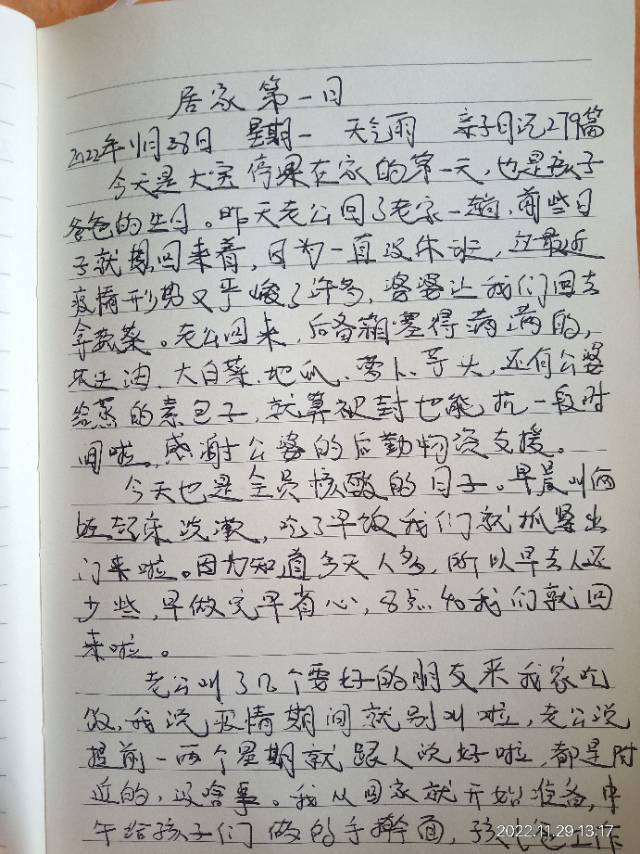 居家第一日
2022年11月28日 星期一 天气雨 亲子日记279篇
今天是大宝停课在家的第一天,也是孩子
爸爸的生日。昨天老公回了老家一趟,前些日
子就想回来着,因为一直没休班,这最近
疫情形势又严峻了许多,婆婆让我们回去
拿蔬菜。老公回来,后备箱塞得满满的,
花生油、大白菜、地瓜、萝卜、芋头,还有公婆
给蒸的素包子,就算被封也能抗一段时
间啦。感谢公婆的后勤物资支援。
今天也是全员核酸的日子。早晨叫俩
起床洗漱,吃了早饭我们就抓紧出
门来啦。因为知道今天人多,所以早去人还
少些,早做完早省心,8点40我们就回
来啦。
老公叫了几个要好的朋友来我家吃
饭,我说疫情期间就别叫啦,老公说
提前一两个星期就跟人说好啦,都是附
近的,没啥事。我从回家就开始准备,中
午给孩子们做的手擀面,孩儿他工作
2022.11.29 13:17